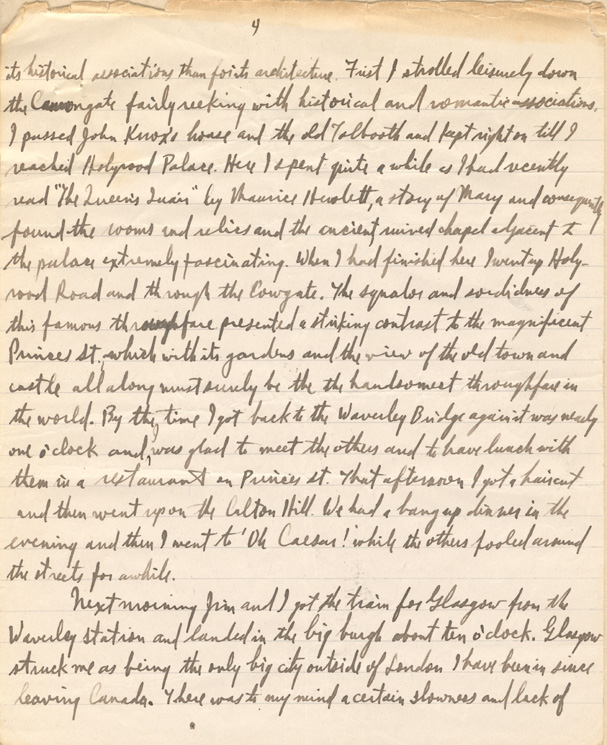 4
its historical associations than for its architecture. First I strolled leisurely down
the Canongate fairly reeking with historical and romantic associations.
I passed John Knox's house and the old Tolbooth and kept right on till I
reached Holyrood Palace. Here I spent quite a while as I had recently
read "The Queen's Quair" by Maurice Hewlett, a story of Mary and consequently
found the rooms and relics and the ancient ruined chapel adjacent to
the palace extremely fascinating. When I had finished here I went up Holy-
rood Road and through the Cowgate. The squalor and sordidness of
this famous throughfare presented a striking contrast to the magnificent
Princes St, which with its gardens and the view of the old town and
castle all along must surely be the the handsomest throughfare in
the world. By the time I got back to the Waverley Bridge again it was nearly
one o'clock and was glad to meet the others and to have lunch with
them in a restaurant on Princes st. That afternoon I got a haircut
and then went up on the Calton Hill. We had a bang up dinner in the
evening and then I went to 'Oh Caesar!' while the others fooled around
the streets for awhile.
Next morning Jim and I got the train for Glasgow from the
Waverley station and landed in the big burgh about ten o'clock. Glasgow
struck me as being the only big city outside of London I have been in since
leaving Canada. There was to my mind a certain slowness and lack of